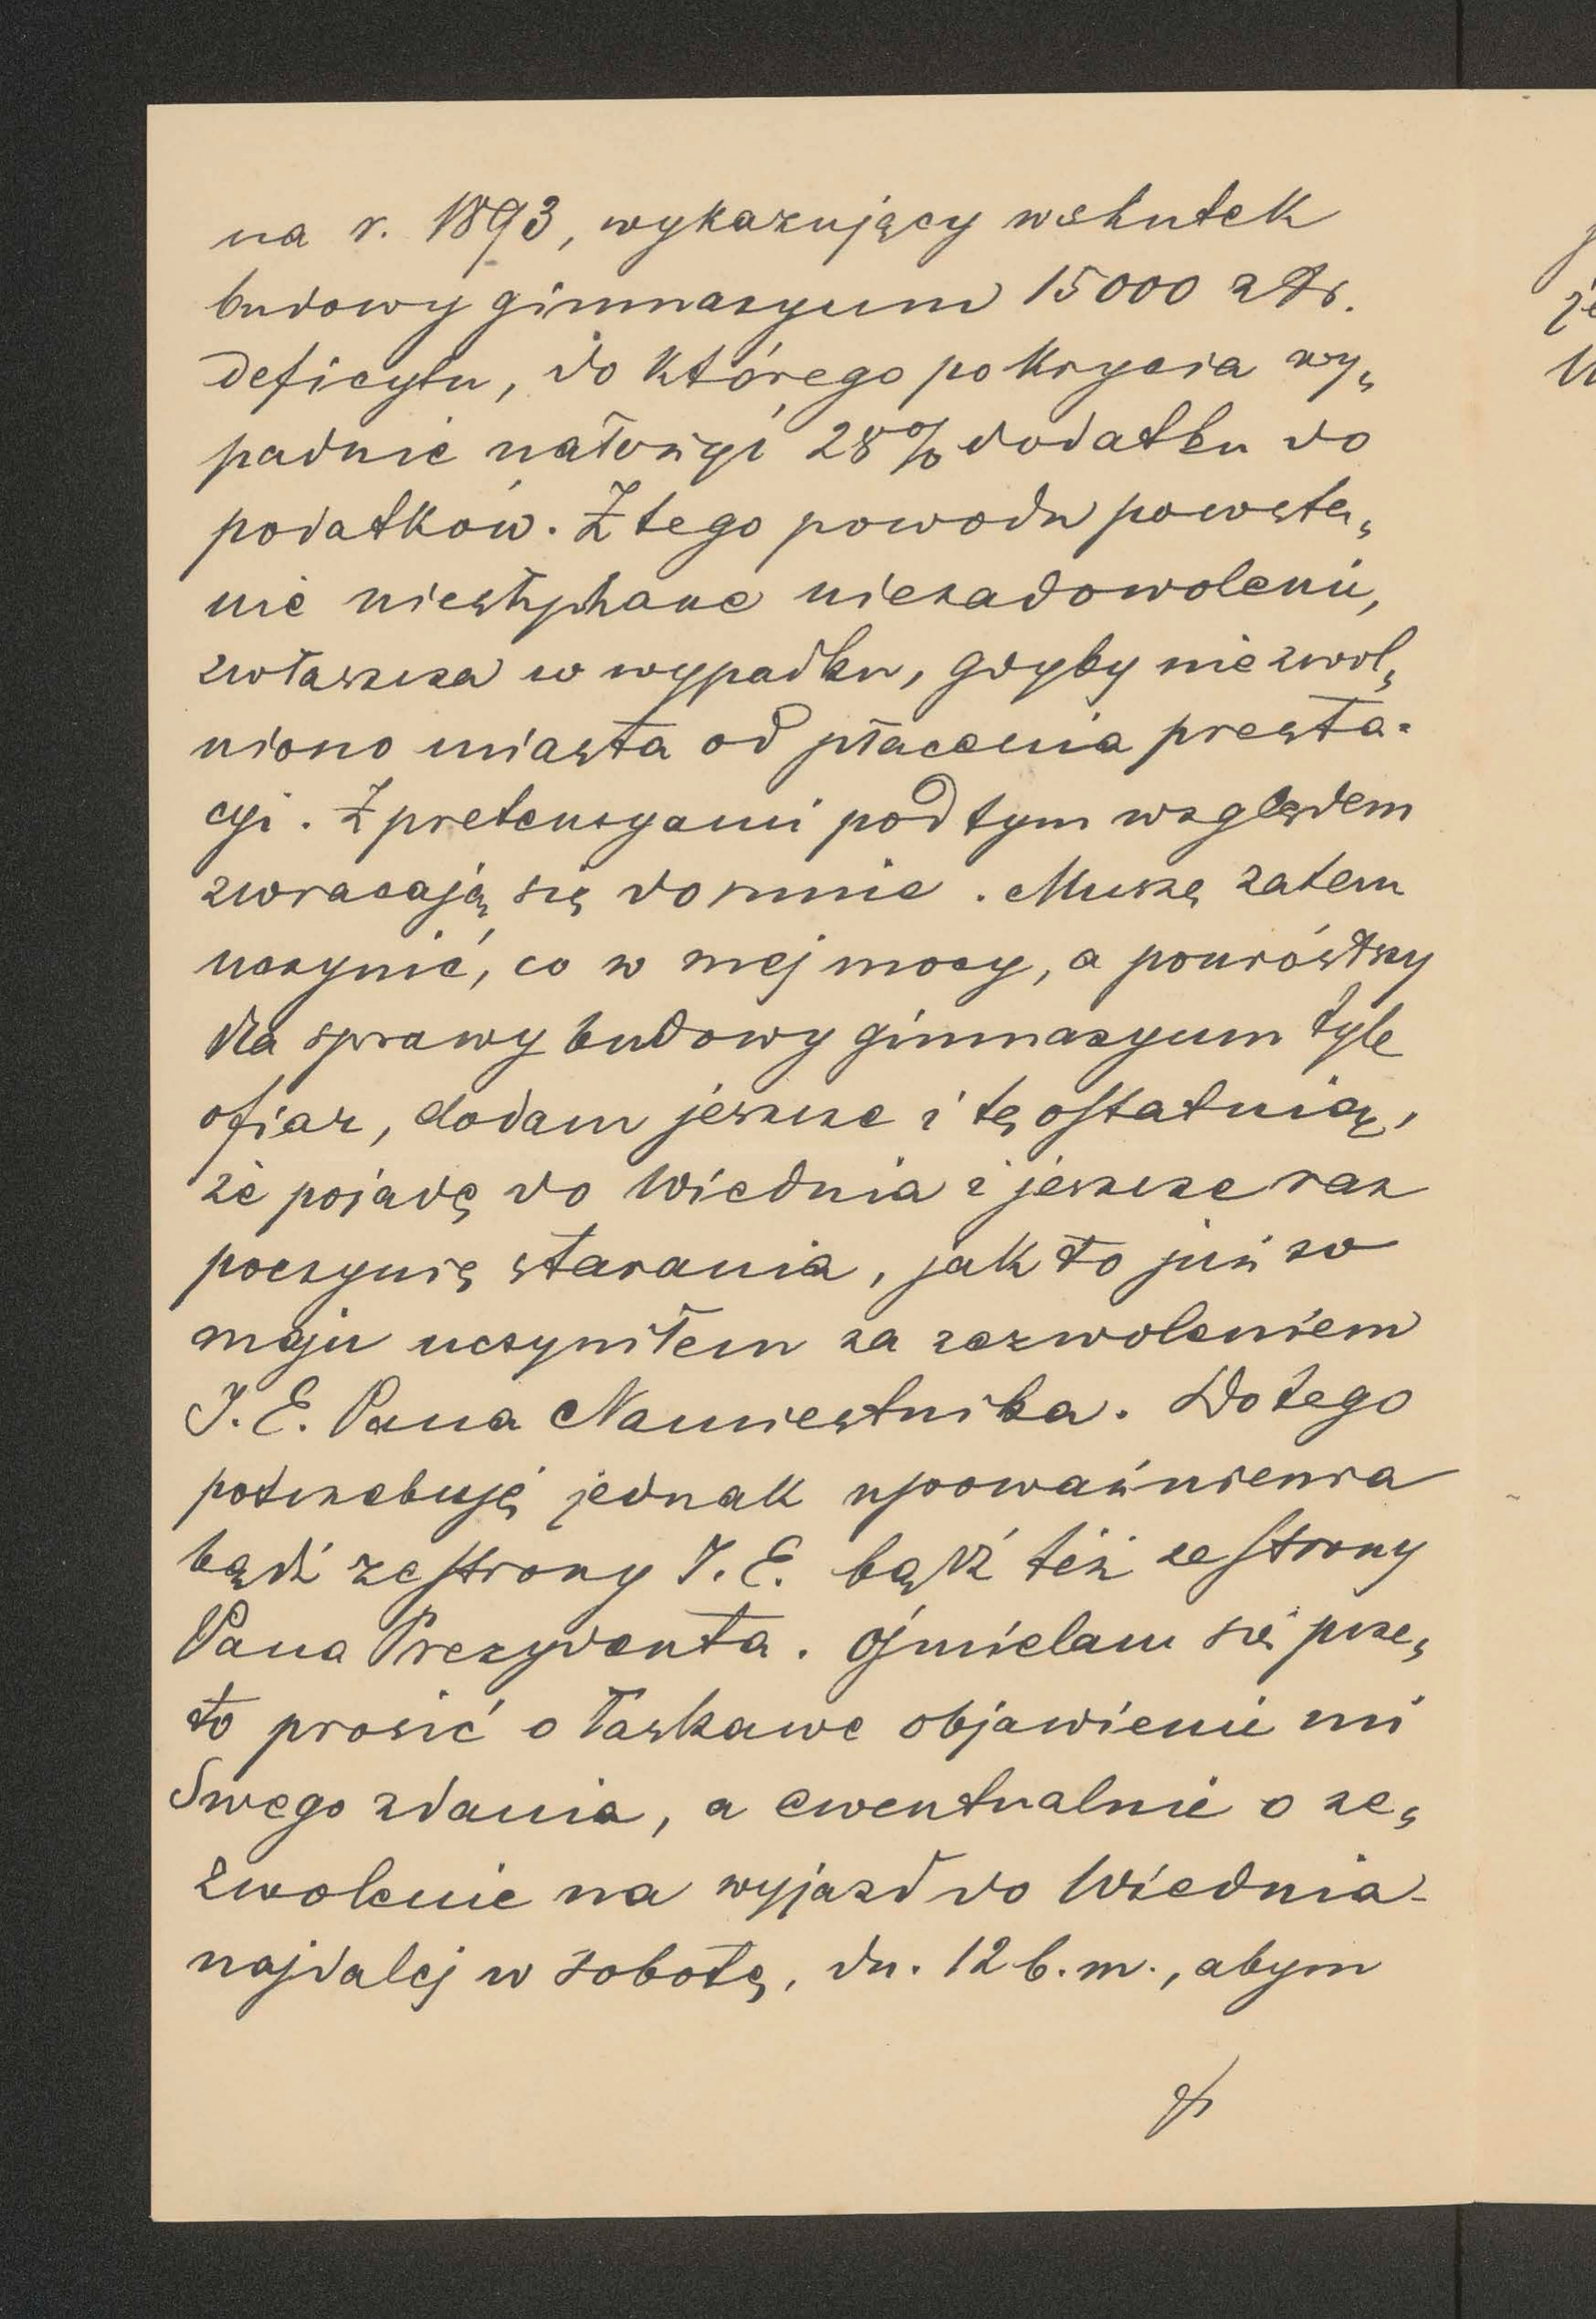 na r. 1893, wykazujący wskutek
budowy gimnazyum 15000 złr.
deficytu, do którego pokrycia wy„
padnie nałożyć 28% dodatku do
podatków. Z tego powodu powsta„
nie niesłychane niezadowolenie,
zwłaszcza w wypadku, gdyby nie zwol„
niono miasta od płacenia presta-
cyi. Z pretensyami pod tym względem
zwracają się do mnie. Muszę zatem
uczynić, co w mej mocy, a poniósłszy
dla sprawy budowy gimnazyum tyle
ofiar, dodam jeszcze i tę ostatnią,
że pojadę do Wiednia i jeszcze raz
poczynię starania, jak to już w
maju uczyniłem za zezwoleniem
J. E. Pana Namiestnika. Do tego
potrzebuję jednak upoważnienia
bądź ze strony J. E. bądź też ze strony
Pana Prezydenta. Ośmielam się prze„
to prosić o łaskawe objawienie mi
Swego zdania, a ewentualnie o ze„
zwolenie na wyjazd do Wiednia
najdalej w sobotę, dn. 12 b. m., abym